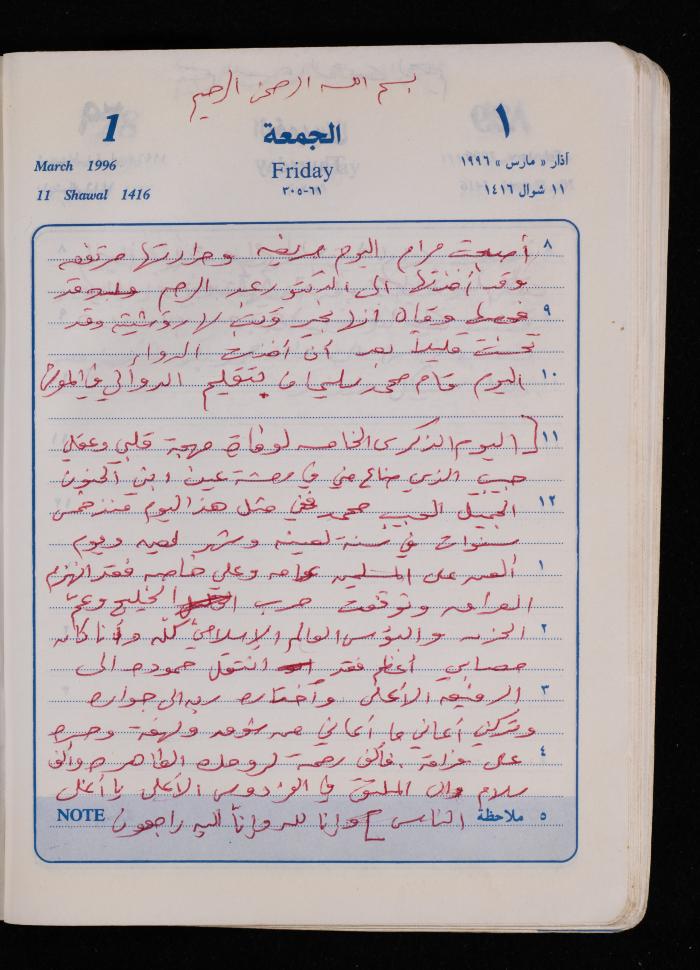 بسم الله الرحمن الرحيم
1 الجمعة ١
March 1996 Friday آذار « مارس » ١٩٩٦
11 Shawal 1416 ٣٠٥-٦١ ١١ شوال ١٤١٦
٨ أصبحت مرام اليوم مريضه وحرارتها مرتفعه
وقد أخذتها الى الدكتور عبد الرحيم وقد
٩ فحصها وقال انها بخير وقد
تحسنت قليلاً بعد أن أخذت الدواء
١٠ اليوم قام محمد سليمان بتقليم الدوالي في
١١ [ اليوم الذكرى الخامسه لوفاة مهجة قلبي وعقلي
حبيبي الذي ضاع مني في رمشة عين ابني الحنون
١٢ الجميل الحبيب محمود ففي مثل هذا اليوم منذ خمس
سنوات في سنة لعينه وشهر لعين ويوم
١ ألعن على المسلمين عامه وعلي خاصه فقد انهزم
العراق وتوقفت حرب الخليج وعمّ
٢ الحزن والبؤس العالم الإسلامي كلّه وأنا كان
مصابي أعظم فقد انتقل محمود الى
٣ الرفيق الأعلى وأختاره ربه الى جواره
وتركني أعاني ما أعاني من شوق ولهفة وحسره
٤ على فراقه . فألف رحمة لروحك الطاهره وألف
سلام والى الملتقى في الفردوس الأعلى يا أغلى
NOTE ٥ ملاحظة الناس ] وإنا لله وإنّا اليه راجعون